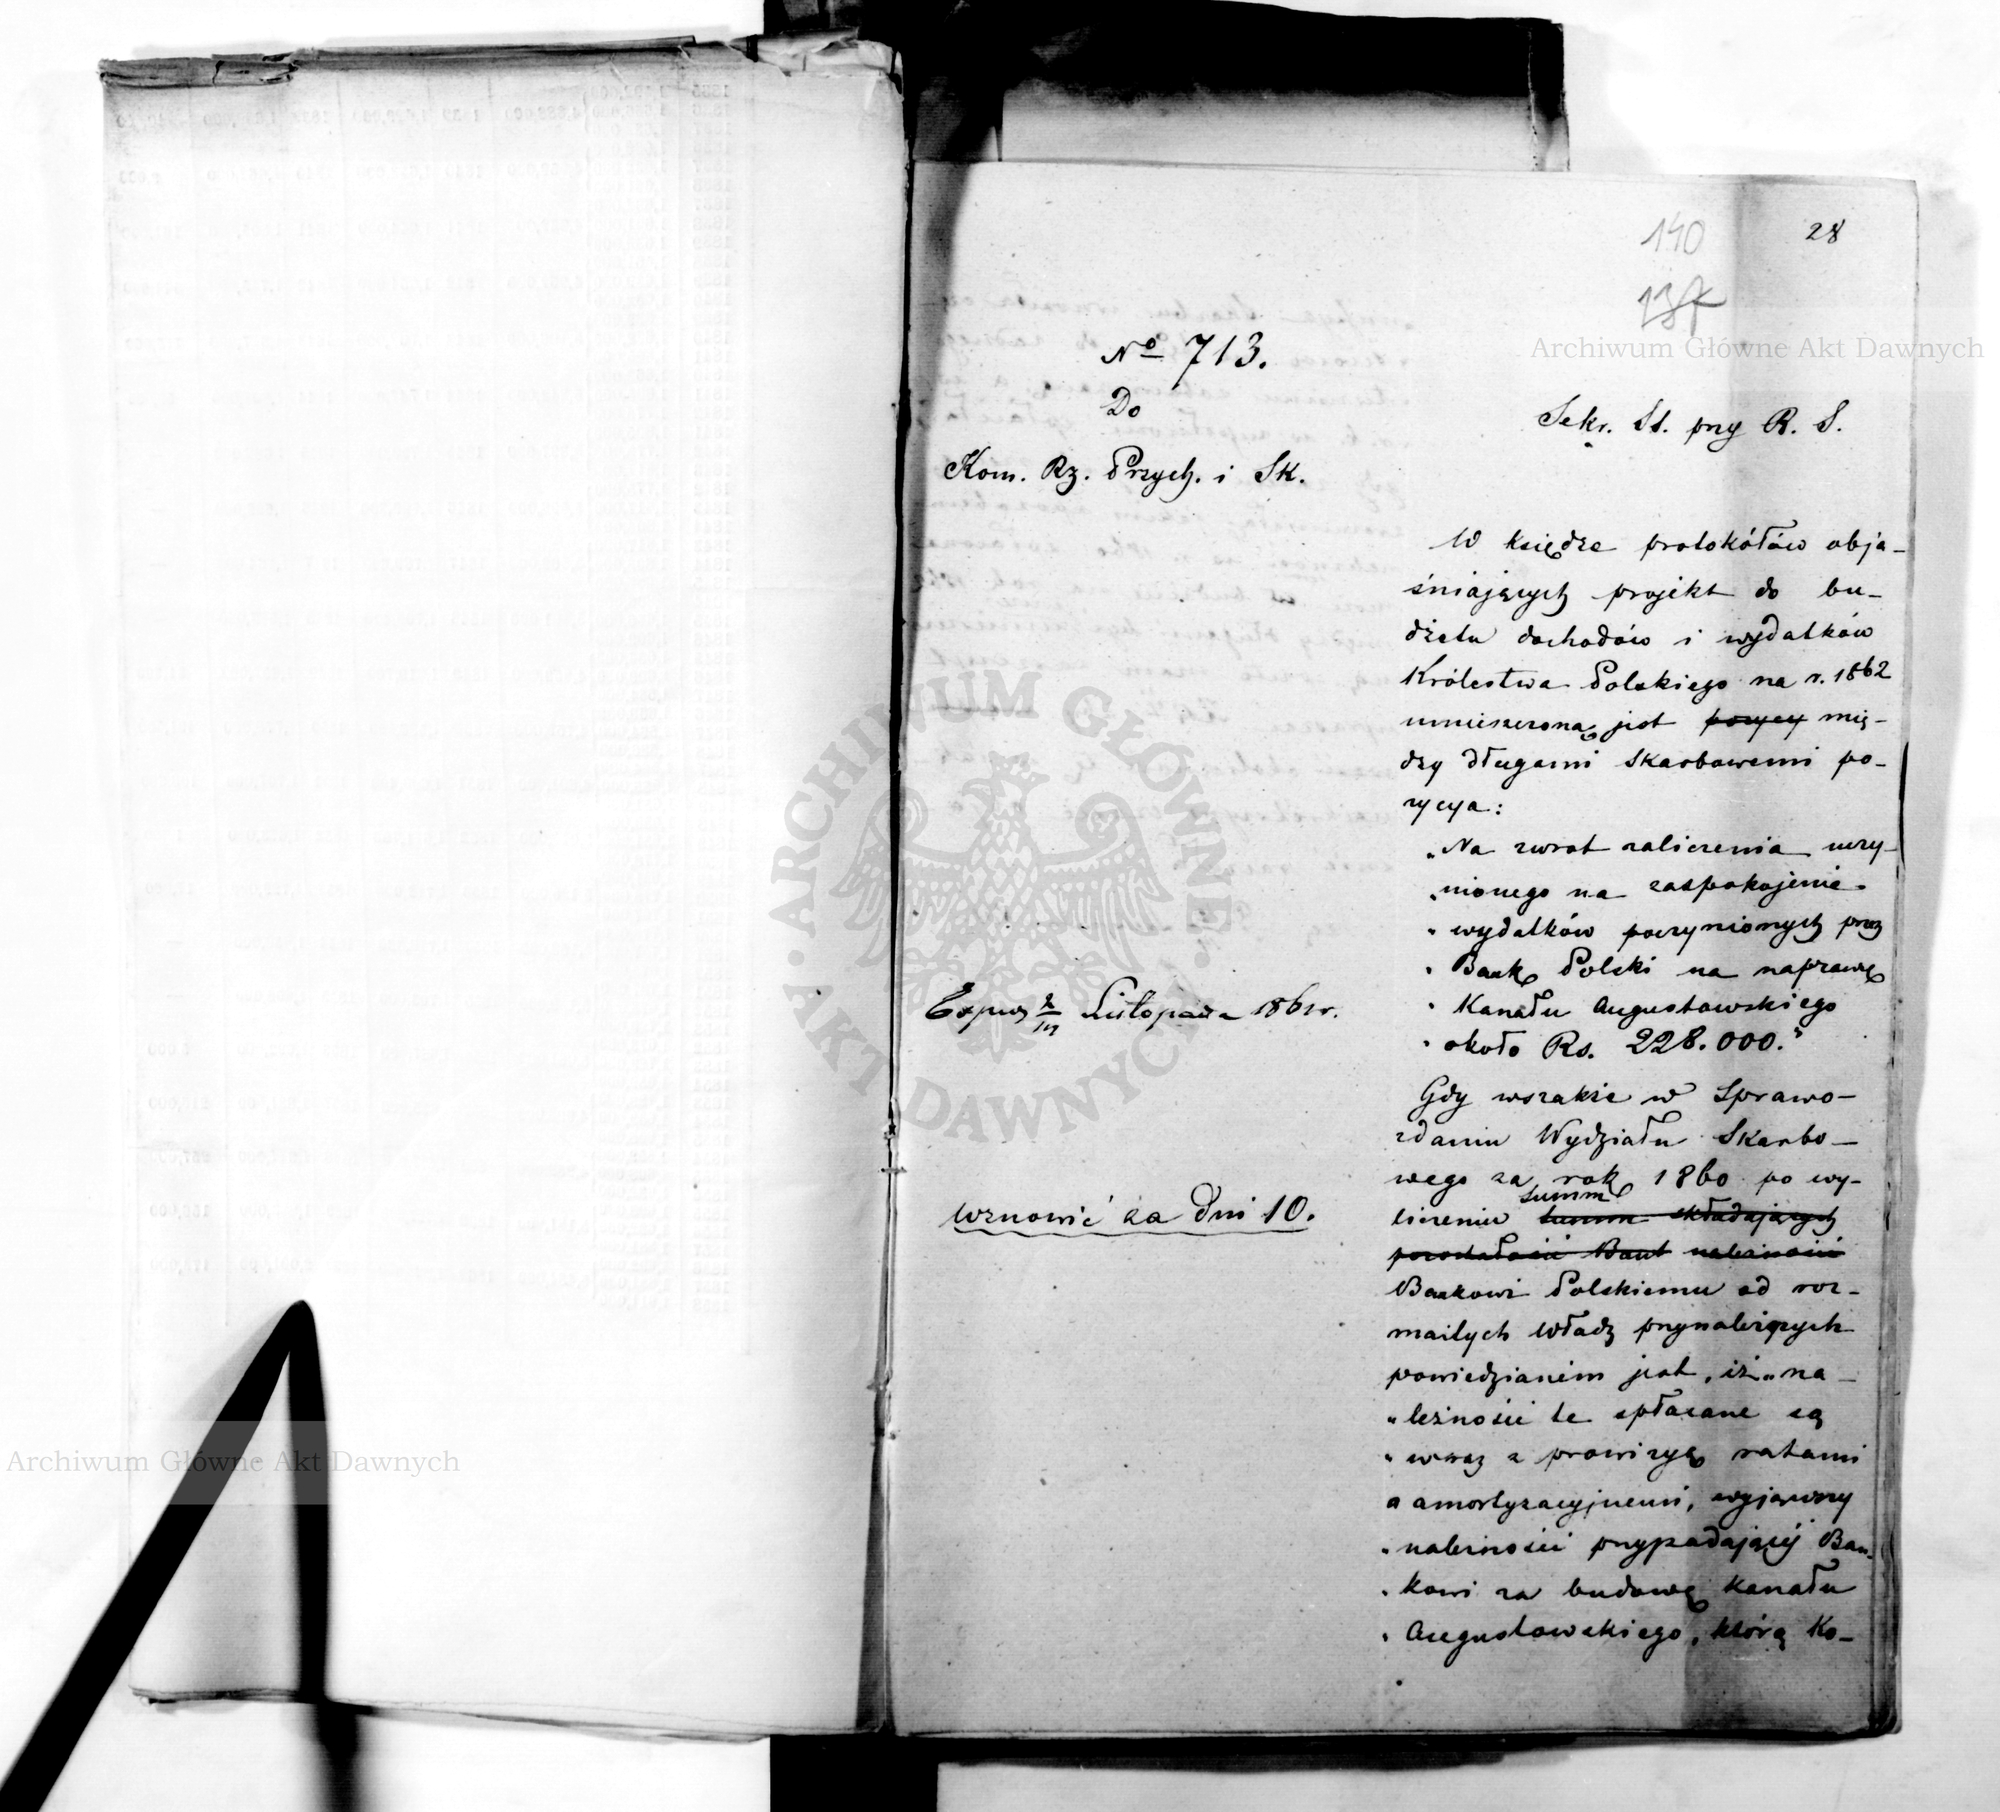 28
140
137
Archiwum Główne Akt Dawnych
No 713.
Do
Kom. Rz. Przych. i Sk.
Sekr. St. przy R. S.
W księdze protokółów obja-
śniających projekt do bu-
dżetu dochodów i wydatków
Królestwa Polskiego na r. 1862
umieszczoną jest pozycy mię-
dzy długami Skarbowemi po-
zycya:
„Na zwrot zaliczenia uczy-
„nionego na zaspokojenie
„wydatków poczynionych przez
„Bank Polski na naprawę
„Kanału Augustowskiego
„około Rs. 228.000."
Gdy wszakże w Sprawo-
zdaniu Wydziału Skarbo-
wego za rok 1860 po wy-
summ
liczeniu summ składających
pozostałość Bank należności
Bankowi Polskiemu od roz-
maitych Władz przynależnych
powiedzianem jest, iż „na-
„leżności te spłacane są
„wraz z prowizyą ratami
„amortyzacyjnemi, wyjąwszy
„należności przypadającéj Ban-
„kowi za budowę Kanału
„Augustowskiego, którą Ko-
Listopada 1861 r.
wznowić za dni 10.
ARCHIWUM GŁÓWNE AKT DAWNYCH
Archiwum Główne Akt Dawnych